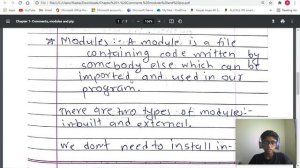 Chapter 1 - Comments, modules and pip
* Modules :- A module is a file
containing code written by
somebody else which can be
imported and used in our
program.
There are two types of modules:-
inbuilt and external.
We dont need to install in-